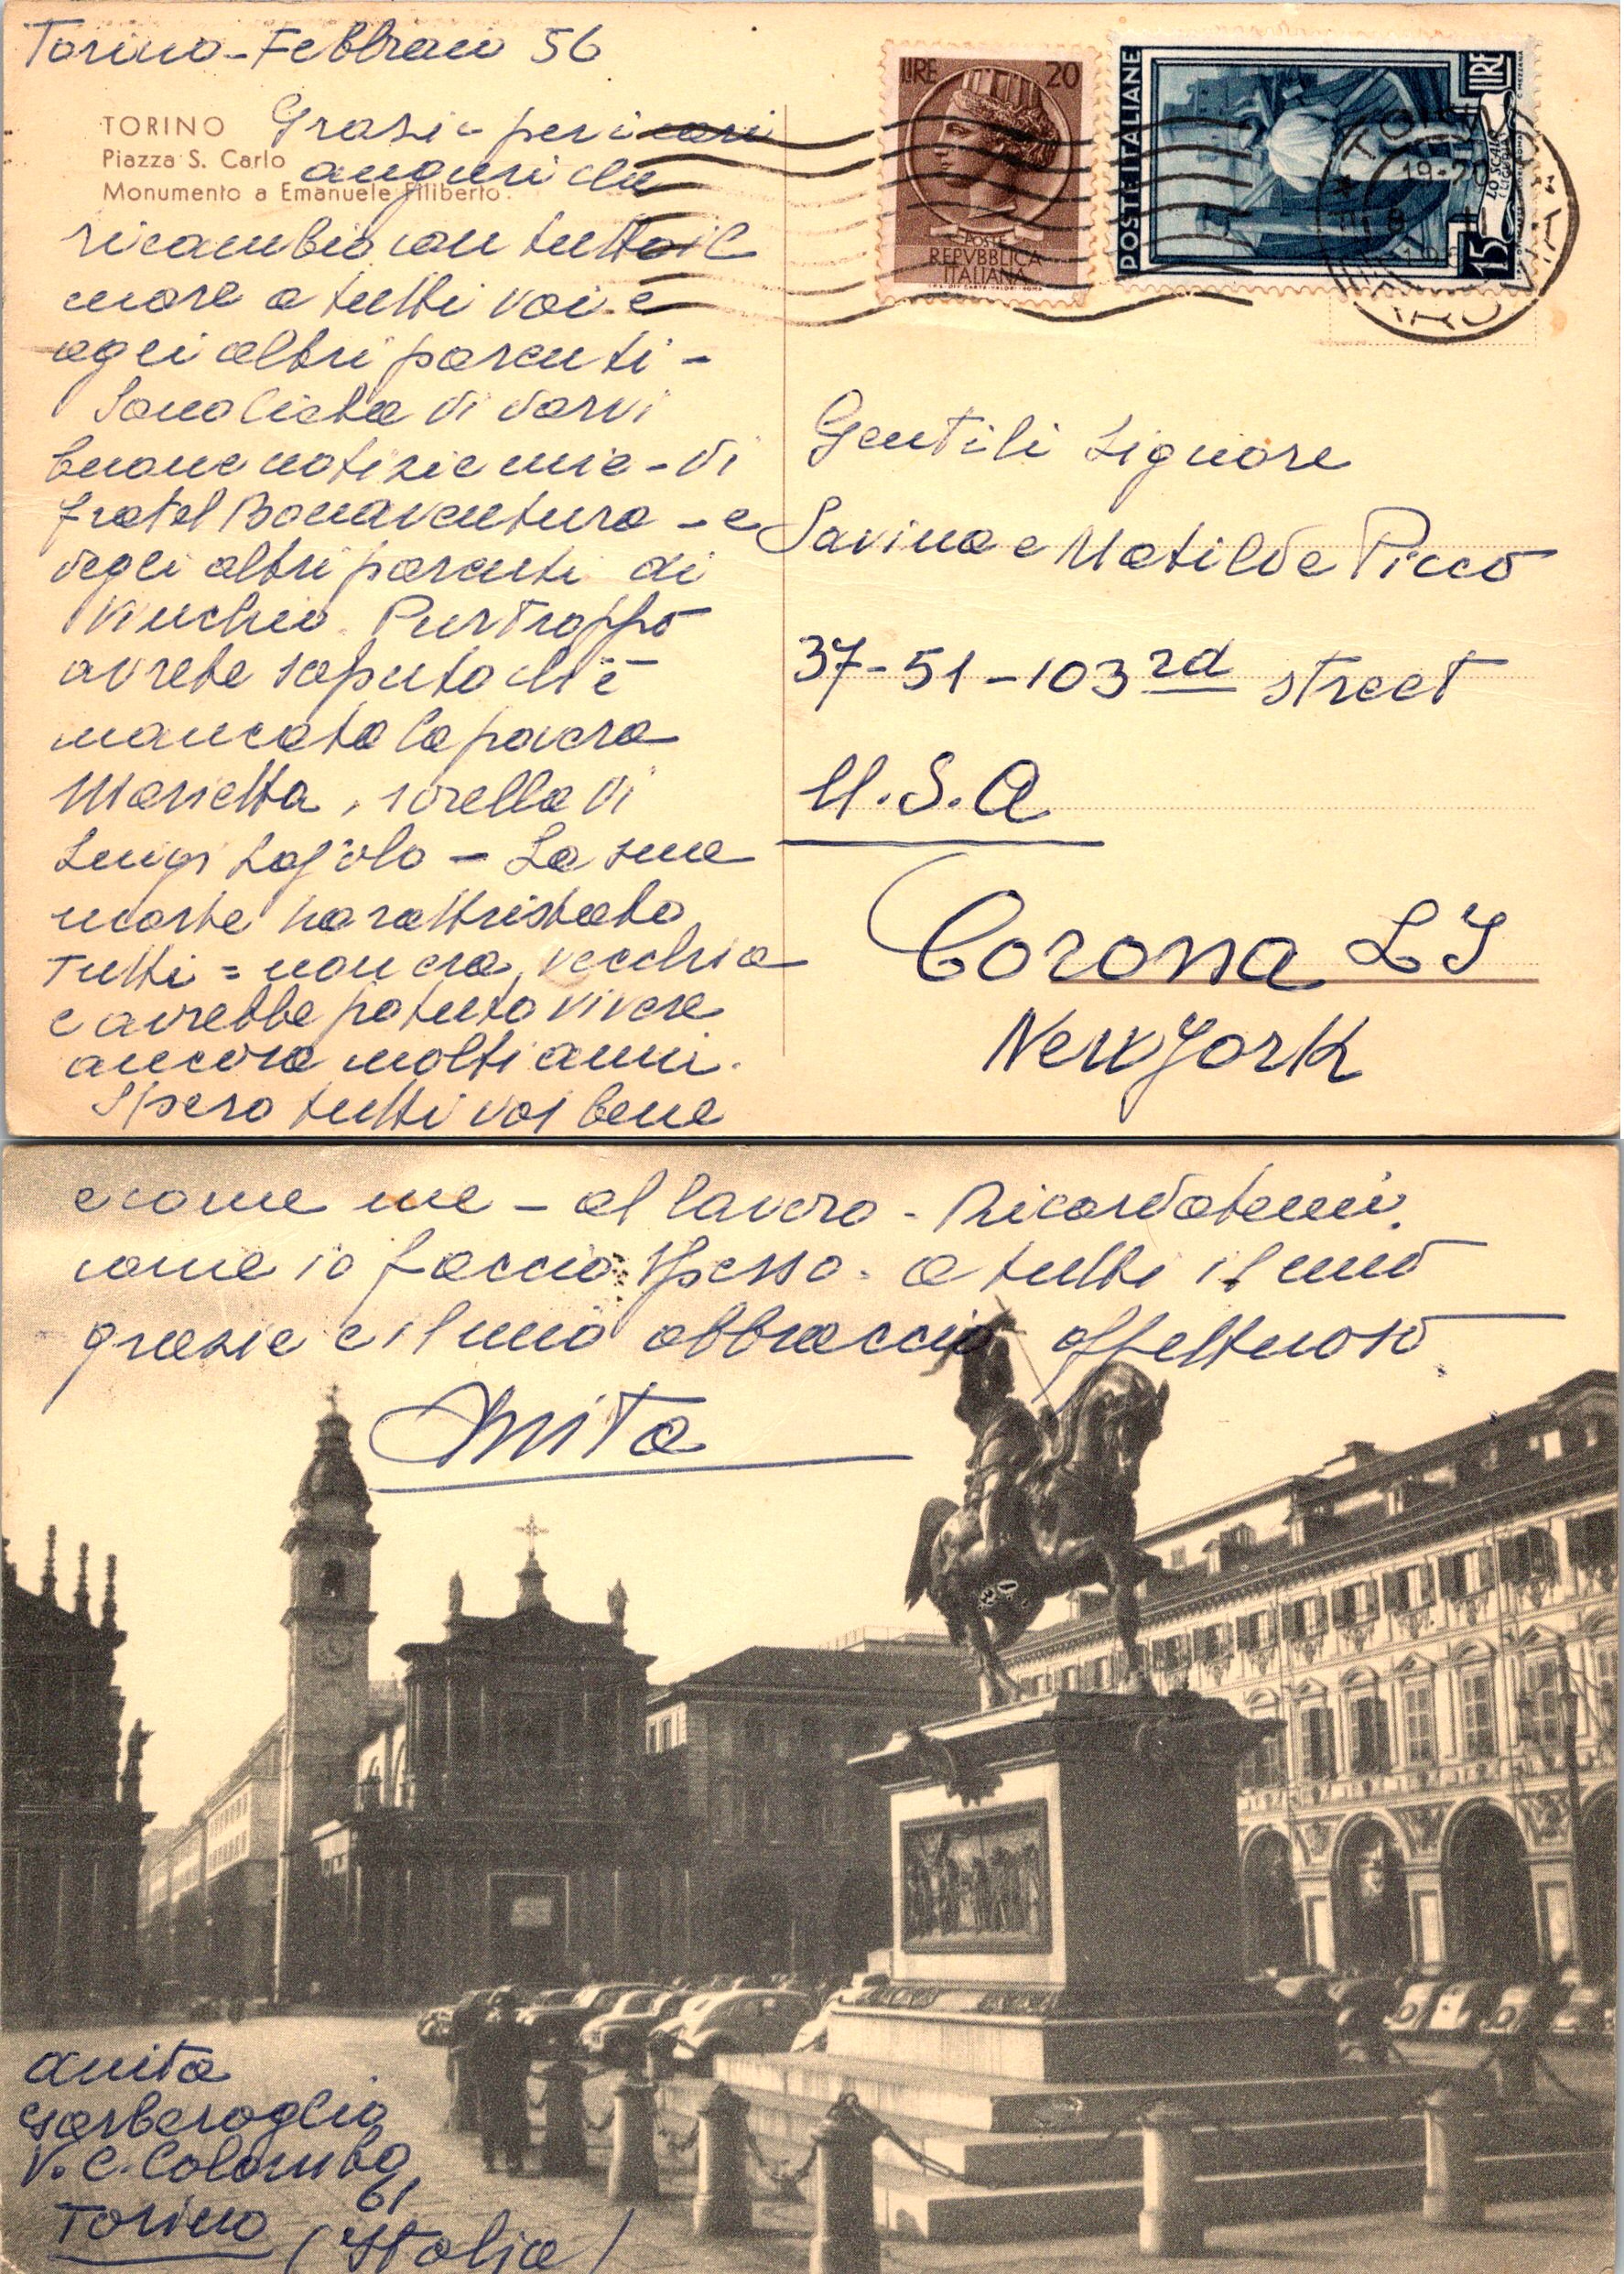 Torino - Febbraio 56
TORINO
Piazza S. Carlo
Monumento a Emanuele Filiberto
Grazie per i cari
auguri che
ricambio con tutto il
cuore a tutti voi e
agli altri parenti -
Sono lieta di darvi
buone notizie mie - di
fratel Bonaventura - e
degli altri parenti di
Vinchio. Purtroppo
avrete saputo ch'è
mancata la povera
Marietta, sorella di
Luigi Lajolo - La sua
morte ha rattristato
tutti = non era vecchia
e avrebbe potuto vivere
ancora molti anni.
Spero tutti voi bene
LIRE 20
POSTE
REPVBBLICA
ITALIANA
POSTE ITALIANE
LIRE 15
LO SCALO
19-20
Gentili Signore
Savina e Matilde Picco
37-51-103rd street
U.S.A
Corona LI
New York
e come me - al lavoro - Ricordatemi
come io faccio spesso - a tutti il mio
grazie e il mio abbraccio affettuoso
Anita
Anita
Garberoglio
V. C. Colombo
61
Torino (Italia)